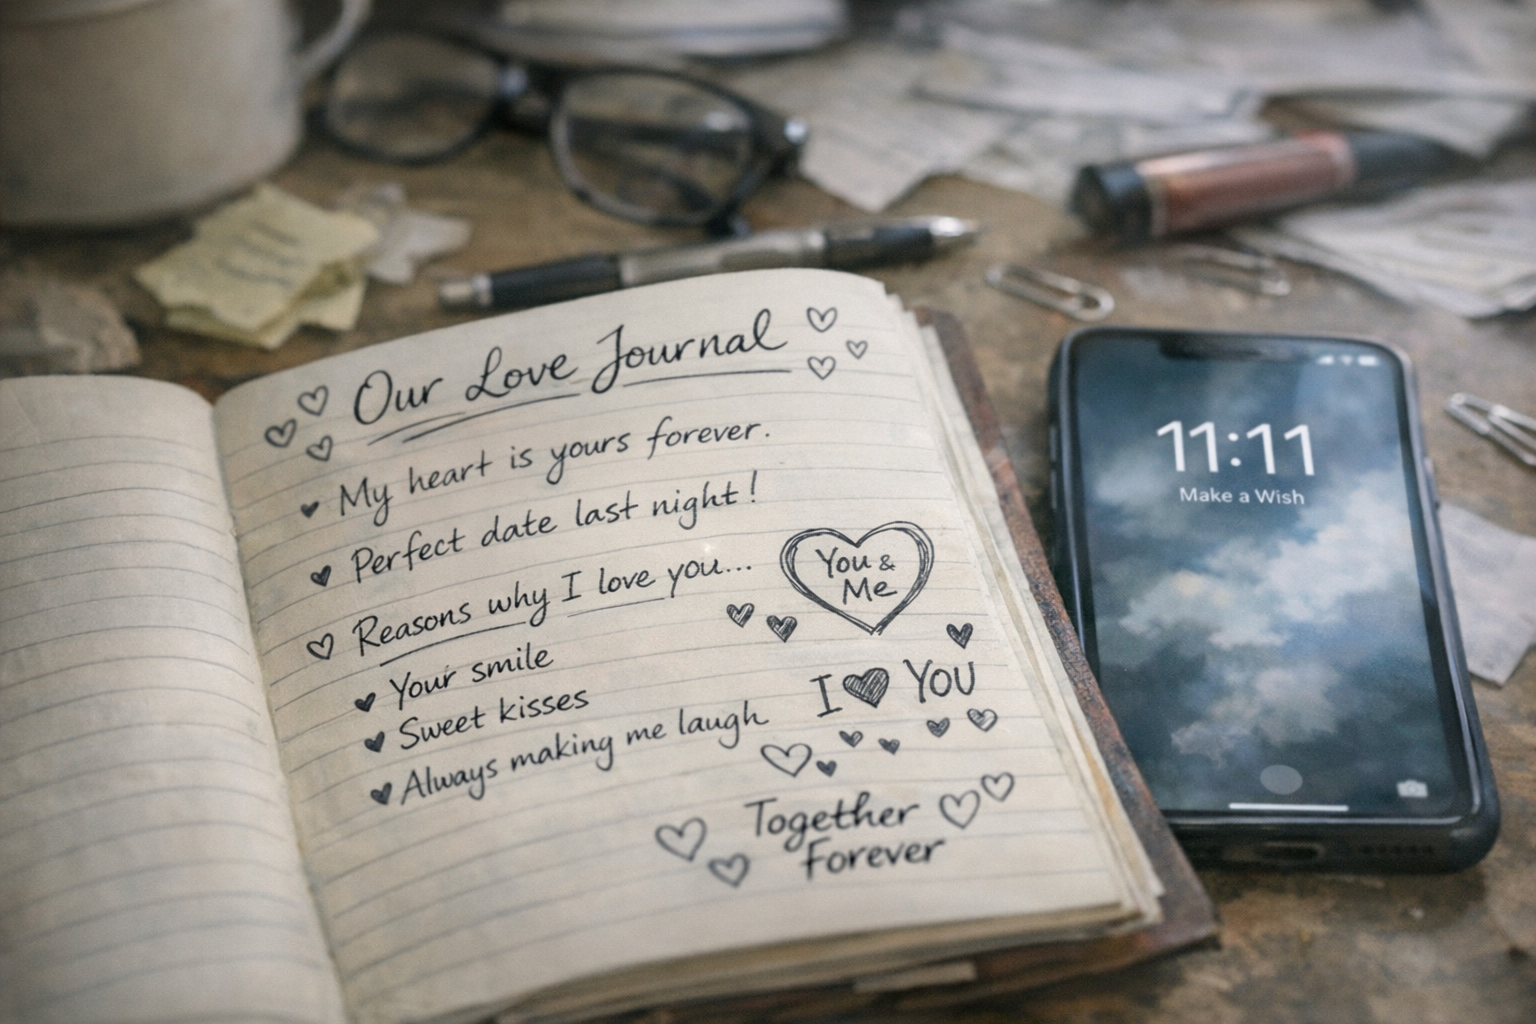 Our Love Journal
My heart is yours forever.
Perfect date last night!
Reasons why I love you...
Your smile
Sweet kisses
Always making me laugh
You &
Me
I ♥ You
Together
Forever
11:11
Make a Wish